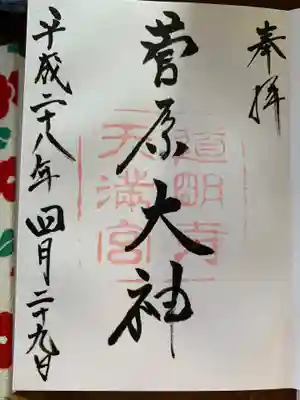 奉拝
菅原大神
道明寺
天満宮
平成二十八年四月二十九日